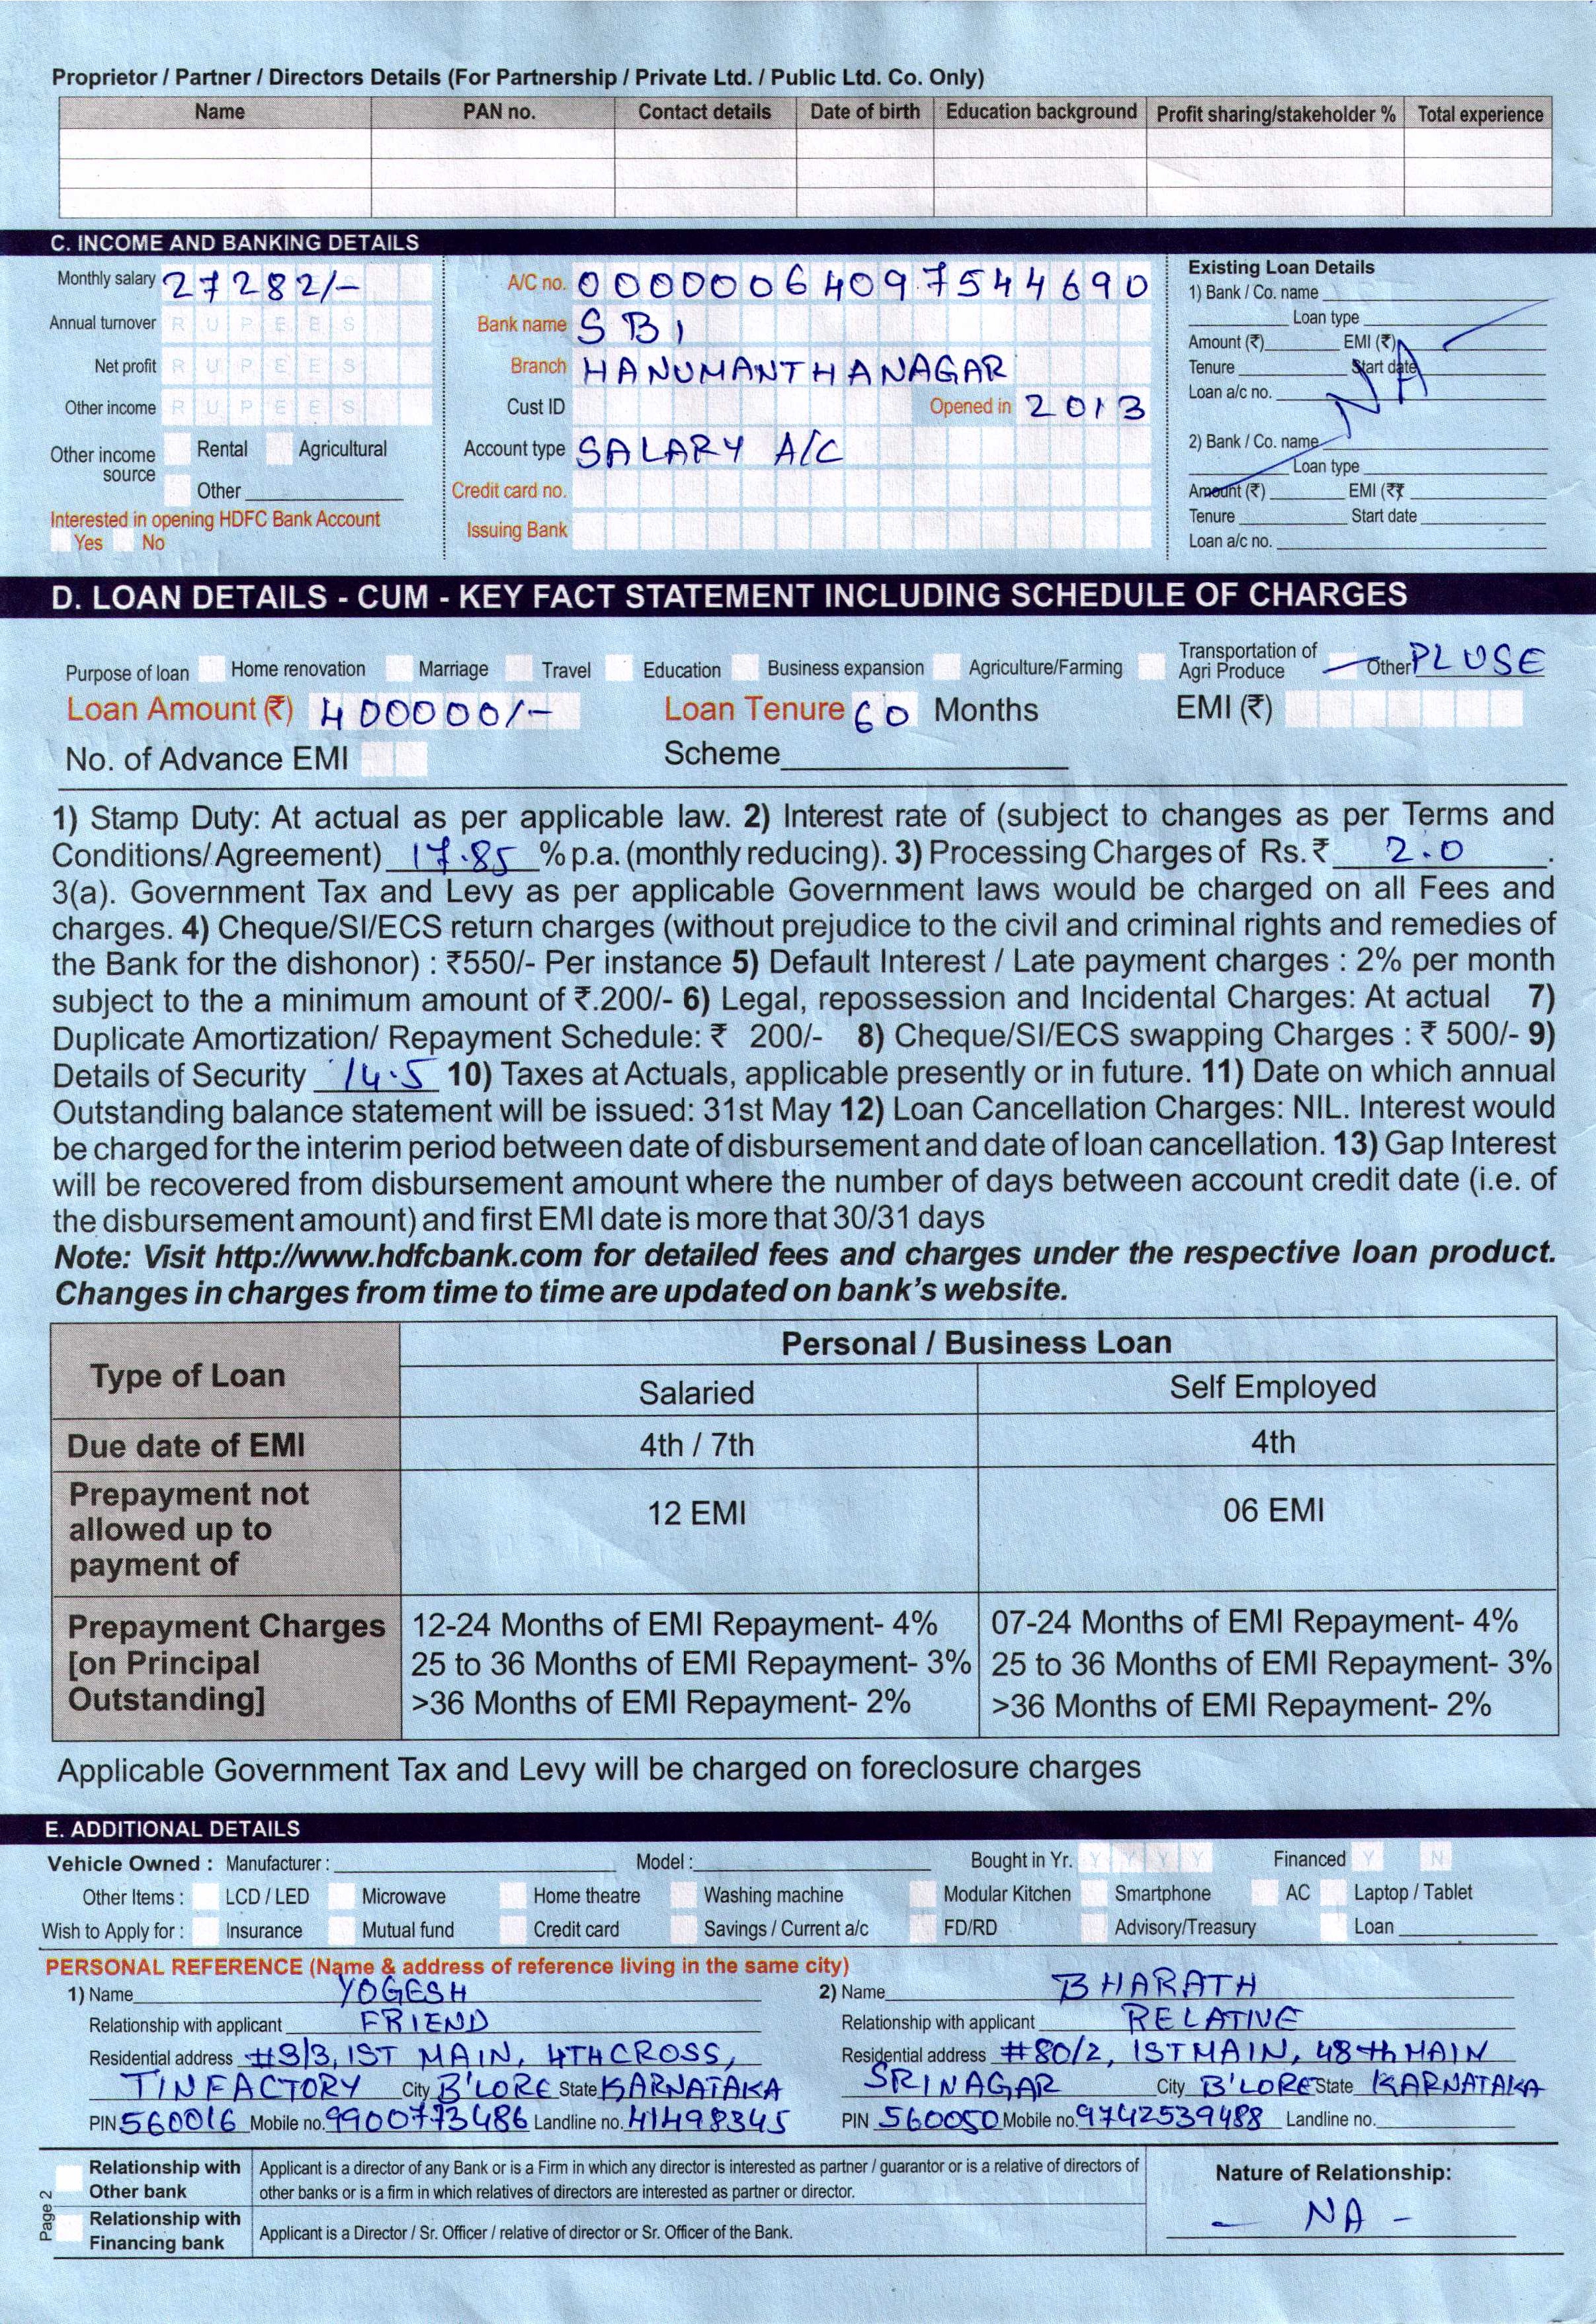 Proprietor / Partner / Directors Details (For Partnership / Private Ltd. / Public Ltd. Co. Only)
Name PAN no. Contact details Date of birth Education background Profit sharing/stakeholder % Total experience
C. INCOME AND BANKING DETAILS
Monthly salary 27282/-
Annual turnover RUPEES
Net profit RUPEES
Other income RUPEES
Other income source Rental Agricultural
Other
Interested in opening HDFC Bank Account
Yes No
A/C no. 00000064097544690
Bank name SBI
Branch HANUMANTHANAGAR
Cust ID Opened in 2013
Account type SALARY A/C
Credit card no.
Issuing Bank
Existing Loan Details
1) Bank / Co. name
Loan type
Amount (₹) EMI (₹)
Tenure Start date
Loan a/c no.
NA
2) Bank / Co. name
Loan type
Amount (₹) EMI (₹
Tenure Start date
Loan a/c no.
D. LOAN DETAILS - CUM - KEY FACT STATEMENT INCLUDING SCHEDULE OF CHARGES
Purpose of loan Home renovation Marriage Travel Education Business expansion Agriculture/Farming Transportation of Agri Produce Other PLUSE
Loan Amount (₹) 400000/- Loan Tenure 60 Months EMI (₹)
No. of Advance EMI Scheme
1) Stamp Duty: At actual as per applicable law. 2) Interest rate of (subject to changes as per Terms and
Conditions/Agreement) 17.85 % p.a. (monthly reducing). 3) Processing Charges of Rs.₹ 2.0 .
3(a). Government Tax and Levy as per applicable Government laws would be charged on all Fees and
charges. 4) Cheque/SI/ECS return charges (without prejudice to the civil and criminal rights and remedies of
the Bank for the dishonor) : ₹550/- Per instance 5) Default Interest / Late payment charges : 2% per month
subject to the a minimum amount of ₹.200/- 6) Legal, repossession and Incidental Charges: At actual 7)
Duplicate Amortization/ Repayment Schedule: ₹ 200/- 8) Cheque/SI/ECS swapping Charges : ₹ 500/- 9)
Details of Security 14.5 10) Taxes at Actuals, applicable presently or in future. 11) Date on which annual
Outstanding balance statement will be issued: 31st May 12) Loan Cancellation Charges: NIL. Interest would
be charged for the interim period between date of disbursement and date of loan cancellation. 13) Gap Interest
will be recovered from disbursement amount where the number of days between account credit date (i.e. of
the disbursement amount) and first EMI date is more that 30/31 days
Note: Visit http://www.hdfcbank.com for detailed fees and charges under the respective loan product.
Changes in charges from time to time are updated on bank's website.
Type of Loan Personal / Business Loan
Salaried Self Employed
Due date of EMI 4th / 7th 4th
Prepayment not allowed up to payment of 12 EMI 06 EMI
Prepayment Charges 12-24 Months of EMI Repayment- 4% 07-24 Months of EMI Repayment- 4%
[on Principal 25 to 36 Months of EMI Repayment- 3% 25 to 36 Months of EMI Repayment- 3%
Outstanding] >36 Months of EMI Repayment- 2% >36 Months of EMI Repayment- 2%
Applicable Government Tax and Levy will be charged on foreclosure charges
E. ADDITIONAL DETAILS
Vehicle Owned : Manufacturer : Model : Bought in Yr. YYYY Financed Y N
Other Items : LCD / LED Microwave Home theatre Washing machine Modular Kitchen Smartphone AC Laptop / Tablet
Wish to Apply for : Insurance Mutual fund Credit card Savings / Current a/c FD/RD Advisory/Treasury Loan
PERSONAL REFERENCE (Name & address of reference living in the same city)
1) Name YOGESH
Relationship with applicant FRIEND
Residential address #3/3, 1ST MAIN, 4TH CROSS,
TINFACTORY City B'LORE State KARNATAKA
PIN 560016 Mobile no. 9900773486 Landline no. 41498345
2) Name BHARATH
Relationship with applicant RELATIVE
Residential address #80/2, 1ST MAIN, 48th MAIN
SRINAGAR City B'LORE State KARNATAKA
PIN 560050 Mobile no. 9742539488 Landline no.
Relationship with Other bank Applicant is a director of any Bank or is a Firm in which any director is interested as partner / guarantor or is a relative of directors of
other banks or is a firm in which relatives of directors are interested as partner or director.
Relationship with Financing bank Applicant is a Director / Sr. Officer / relative of director or Sr. Officer of the Bank.
Nature of Relationship:
- NA -
Page 2